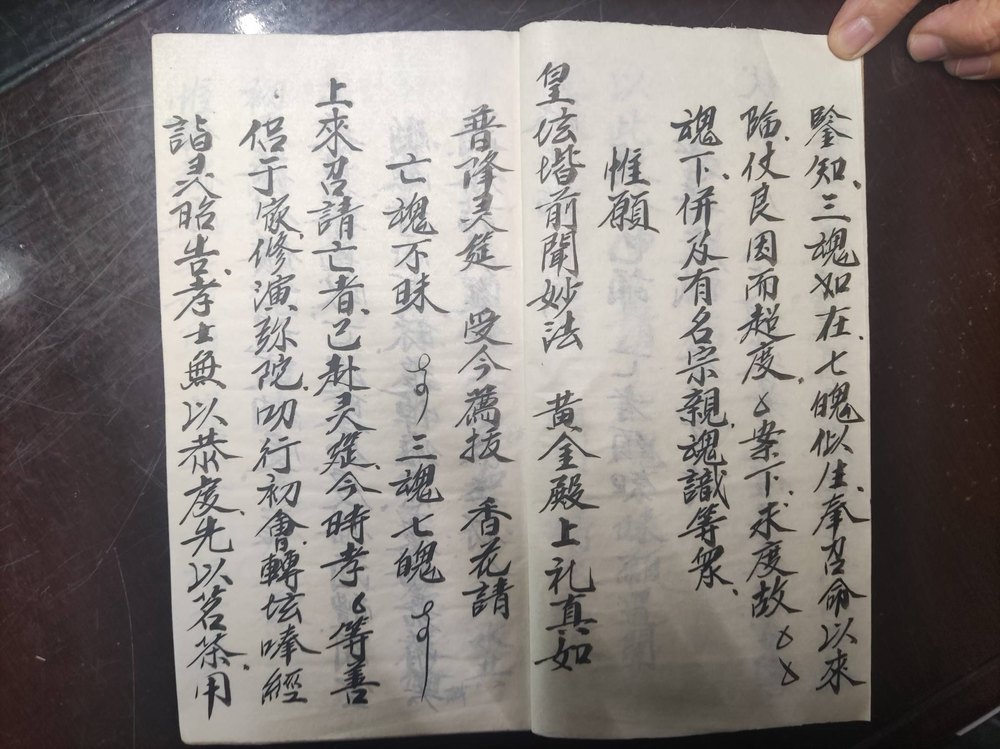 鑒知、三魂如在、七魄似生、奉召命以來
臨、仗良因而超度、〻案下、求度故〻〻
魂下、併及有名宗親、魂識等眾、
惟願
皇坛堦前聞妙法　黄金殿上礼真如
普降灵筵　受今薦拔　香花請
亡魂不昧　三魂七魄
上來召請亡者、已赴灵筵、今時孝〻等善
侣于家修演弥陀、叩行初會、轉坛唪經
詣灵昭告、孝士無以恭虔、先以茗茶、用